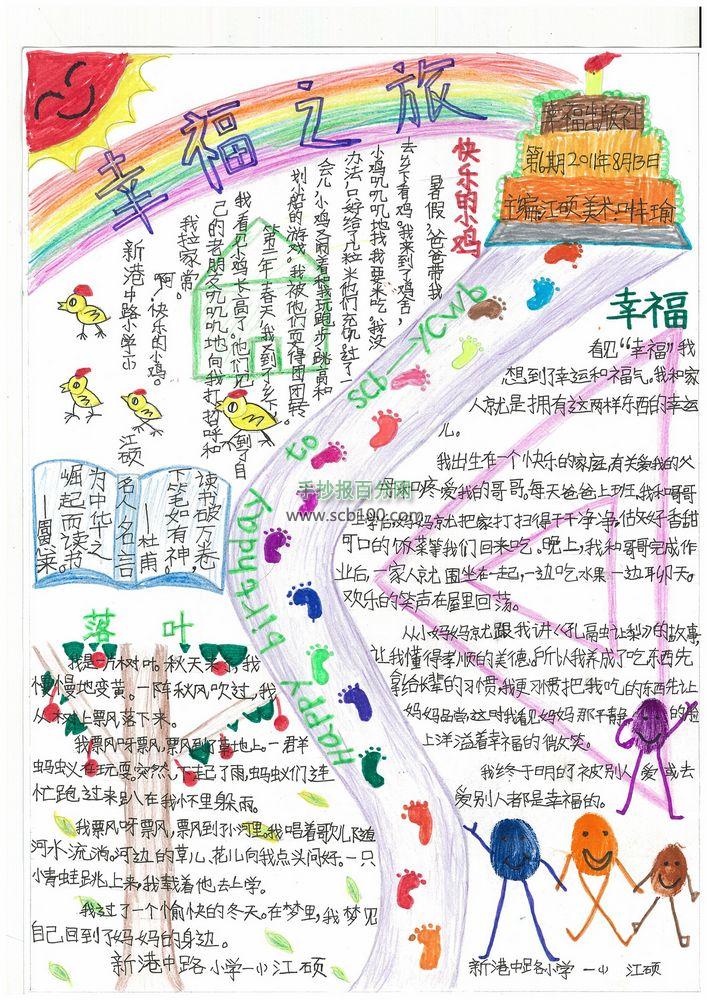 幸福之旅
幸福出版社
第6期2011年8月13日
主编:江硕 美术:叶瑜
快乐的小鸡
暑假,爸爸带我
去乡下看鸡。我来到了鸡舍,
小鸡叽叽叽地找我要东吃。我没
办法,只好给了几粒米他们充饥。过了一
会儿,小鸡又陪着和我玩跑步、跳高和
划小船的游戏。我被他们耍得团团转
第二年春天,我又到了乡下,
我看见小鸡长高了。他们见到了自
己的老朋友,叽叽叽地向我打招呼和
我拉家常。
啊,快乐的小鸡。
新港中路小学一小
江硕
读书破万卷,
下笔如有神,
—杜甫
名人名言
为中华之
崛起而读书
—周恩来
Happy birthday to scb—YCWb
手抄报百分网
www.scb100.com
幸福
看见“幸福”我
想到了幸运和福气。我和家
人就是拥有这两样东西的幸运
儿。
我出生在一个快乐的家庭,有关爱我的父
母和疼爱我的哥哥。每天爸爸上班,我和哥哥
上学后,妈妈就把家打扫得干干净净,做好香甜
可口的饭菜等我们回来吃。晚上,我和哥哥完成作
业后,一家人就围坐在一起,一边吃水果一边聊天。
欢乐的笑声在屋里回荡。
从小妈妈就跟我讲《孔融让梨》的故事,
让我懂得孝顺的美德。所以我养成了吃东西先
拿给长辈的习惯,我更习惯把我吃的东西先让
妈妈品尝,这时我看见妈妈那平静的脸
上洋溢着幸福的微笑。
我终于明白了被别人爱或去
爱别人都是幸福的。
新港中路小学 一小 江硕
落叶
我是一片树叶。秋天来了,我
慢慢地变黄。一阵秋风吹过,我
从树上飘风落下来。
我飘风呀飘风,飘风到了草地上。一群
蚂蚁在玩耍。突然,下起了雨,蚂蚁们连
忙跑过来趴在我怀里躲雨。
我飘风呀飘风,飘风到了小河里。我唱着歌儿随
河水流淌。河边的草儿、花儿向我点头问好。一只
小青蛙跳上来,我载着他去上学。
我过了一个愉快的冬天。在梦里,我梦见
自己回到了妈妈的身边。
新港中路小学一小 江硕